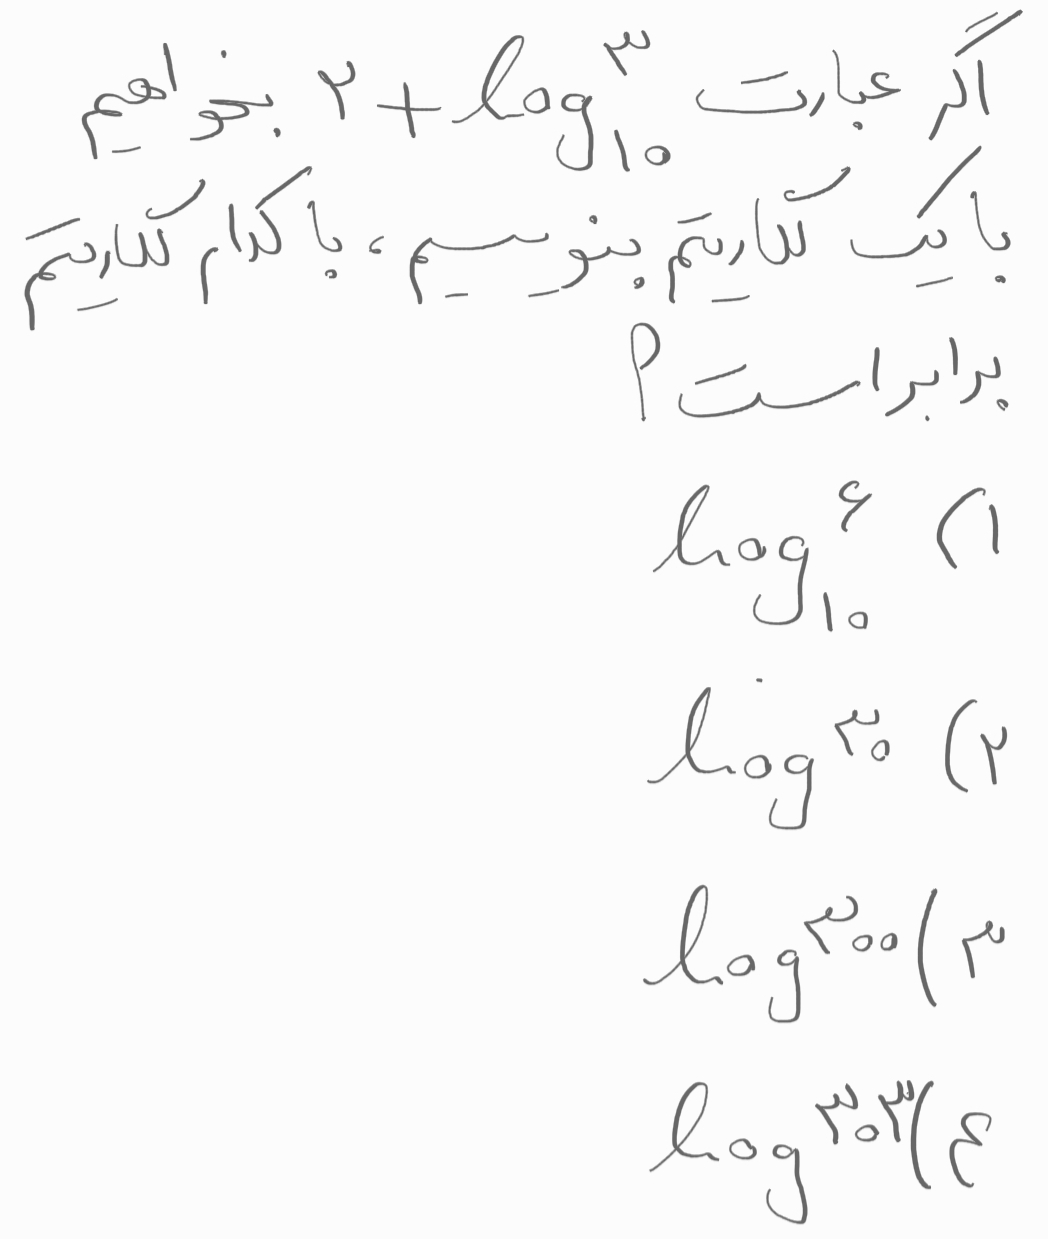 اگر عبارت ۲ + log₁₀³ بخواهیم
با یک لگاریتم بنویسیم، با کدام لگاریتم
برابر است؟
۱) log₁₀⁶
۲) log ۳۰
۳) log ۳۰۰
۴) log ۳۰۳